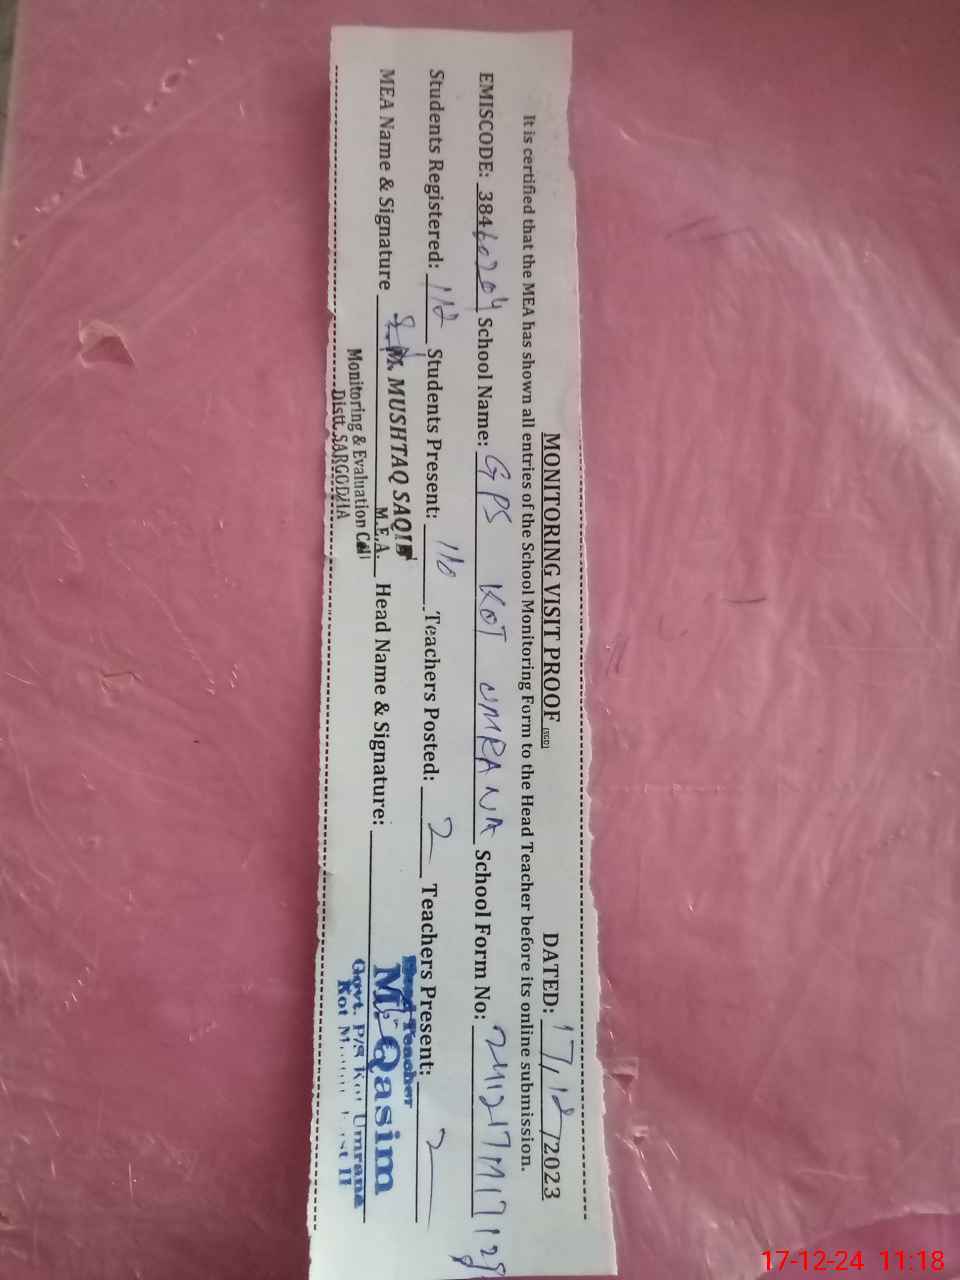 MONITORING VISIT PROOF (SGD) DATED: 17/12/2023
It is certified that the MEA has shown all entries of the School Monitoring Form to the Head Teacher before its online submission.
EMISCODE: 38460204 School Name: GPS KOT UMRANA School Form No: 241217M17129
Students Registered: 112 Students Present: 110 Teachers Posted: 2 Teachers Present: 2
MEA Name & Signature M. MUSHTAQ SAQIB Head Name & Signature:
M.E.A.
Monitoring & Evaluation Cell
Distt. SARGODHA
Head Teacher
M. Qasim
Govt. P/S Kot Umrana
Kot
17-12-24 11:18